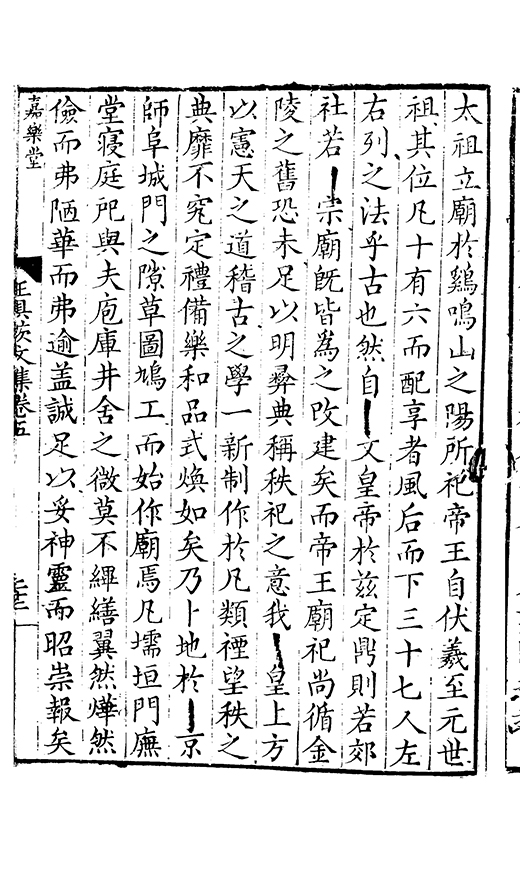 太祖立廟於鷄鳴山之陽所祀帝王自伏羲至元世
祖其位凡十有六而配享者風后而下三十七人左
右列之法乎古也然自文皇帝於兹定鼎則若郊
社若宗廟旣皆為之改建矣而帝王廟祀尚循金
陵之舊恐未足以明彛典稱秩祀之意我皇上方
以憲天之道稽古之學一新制作於凡類禋望秩之
典靡不究定禮備樂和品式煥如矣乃卜地於京
師阜城門之隙草圖鳩工而始作廟焉凡壖垣門廡
堂寝庭戺與夫庖庫井舍之微莫不繩繕翼然燁然
儉而弗陋華而弗逾盖誠足以妥神靈而昭崇報矣
嘉樂堂
文集卷五